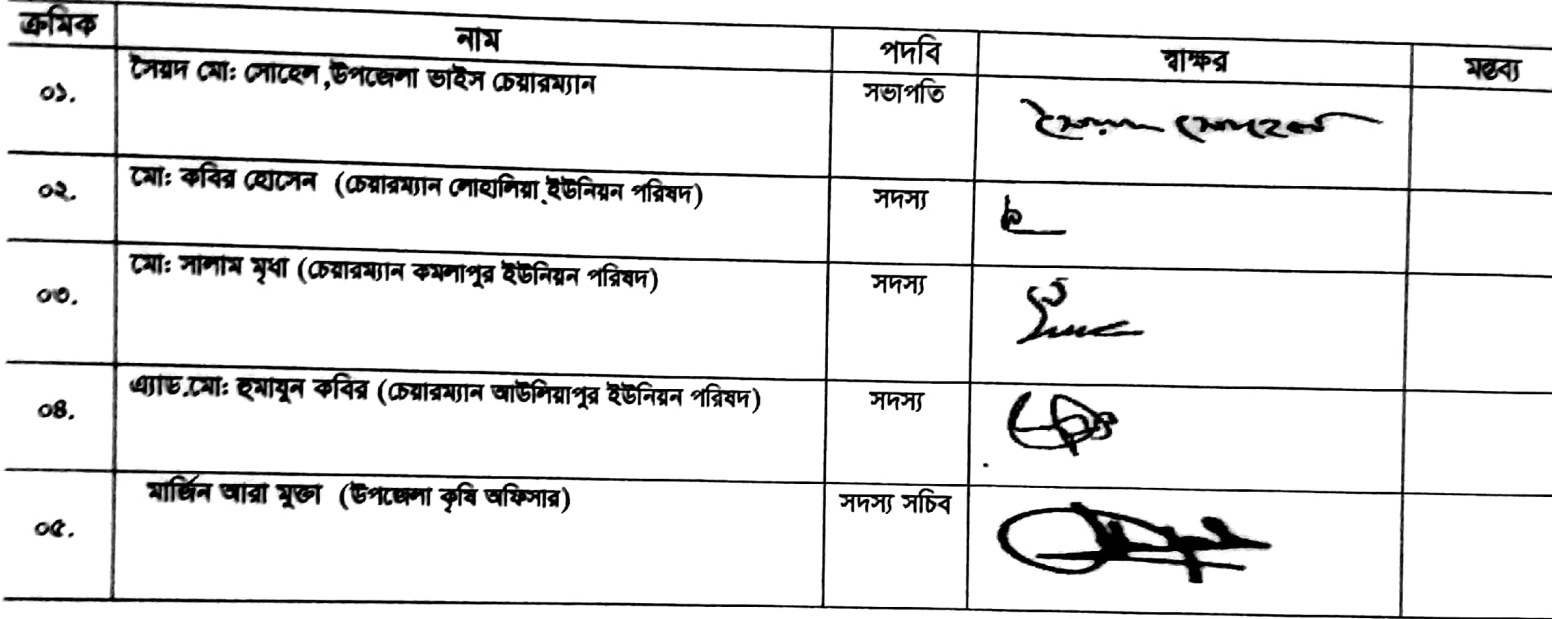 ক্রমিক নাম পদবি স্বাক্ষর মন্তব্য
০১. সৈয়দ মো: সোহেল,উপজেলা ভাইস চেয়ারম্যান সভাপতি সৈয়দ সোহেল
০২. মো: কবির হোসেন (চেয়ারম্যান লোহালিয়া ইউনিয়ন পরিষদ) সদস্য
০৩. মো: সালাম মৃধা (চেয়ারম্যান কমলাপুর ইউনিয়ন পরিষদ) সদস্য
০৪. এ্যাড.মো: হুমায়ুন কবির (চেয়ারম্যান আউলিয়াপুর ইউনিয়ন পরিষদ) সদস্য
০৫. মার্জিন আরা মুক্তা (উপজেলা কৃষি অফিসার) সদস্য সচিব